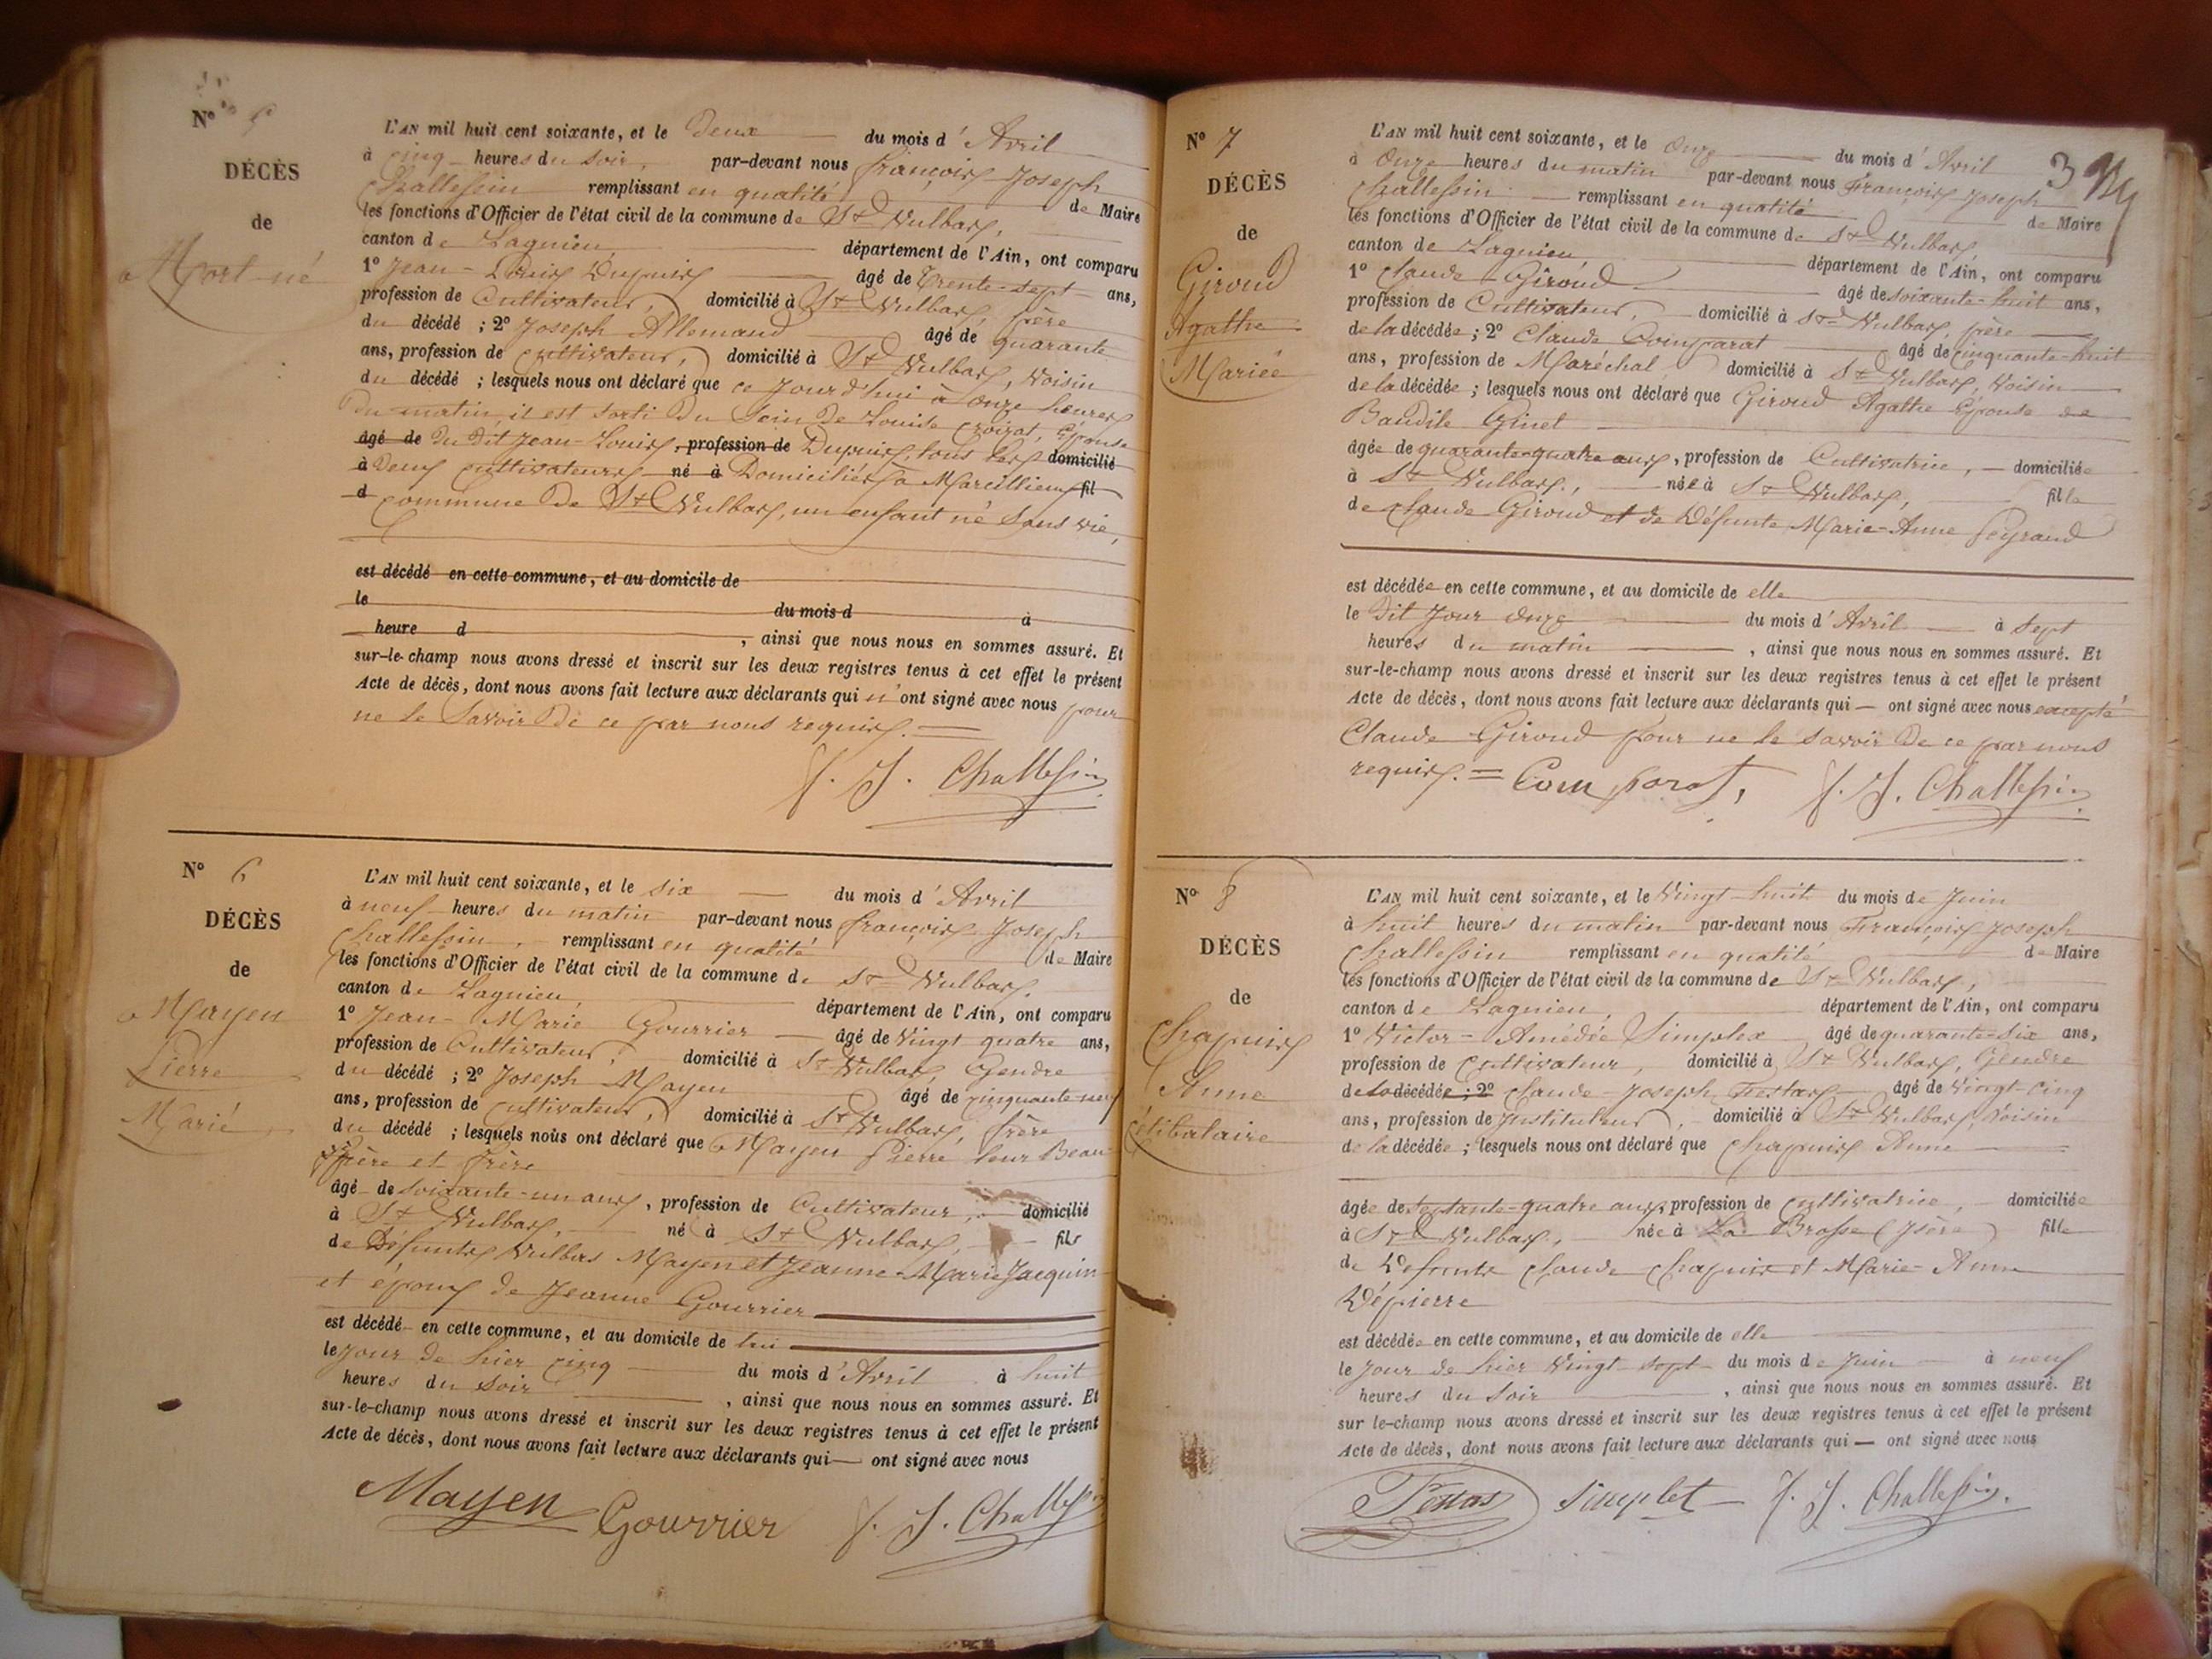 N° 5
DÉCÈS
de
Mort-né
L'AN mil huit cent soixante, et le Deux du mois d'Avril
à cinq heures du soir, par-devant nous François Joseph
Challessin remplissant en qualité de Maire
les fonctions d'Officier de l'état civil de la commune de St Vulbas,
canton de Lagnieu, département de l'Ain, ont comparu
1° Jean-Louis Dupuis âgé de Trente-sept ans,
profession de Cultivateur, domicilié à St Vulbas, père
du décédé ; 2° Joseph Allemand âgé de quarante
ans, profession de Cultivateur, domicilié à St Vulbas, Voisin
du décédé ; lesquels nous ont déclaré que ce Jourd'hui à onze heures
Du matin, il est sorti Du Sein De Louise Croizat, Épouse
âgé de Du Dit Jean-Louis, profession de Dupuis, tous les domicilié
à Deux Cultivateurs né à Domiciliés à Marcillieux fil
d commune De St Vulbas, un enfant né sans vie,
est décédé en cette commune, et au domicile de
le du mois d à
heure d , ainsi que nous nous en sommes assuré. Et
sur-le-champ nous avons dressé et inscrit sur les deux registres tenus à cet effet le présent
Acte de décès, dont nous avons fait lecture aux déclarants qui n'ont signé avec nous pour
ne le Savoir De ce par nous requis. =
f. J. Challessin
N° 6
DÉCÈS
de
Mayen
Pierre
Marié
L'AN mil huit cent soixante, et le six du mois d'Avril
à neuf heures du matin par-devant nous François Joseph
Challessin, remplissant en qualité de Maire
les fonctions d'Officier de l'état civil de la commune de St Vulbas,
canton de Lagnieu, département de l'Ain, ont comparu
1° Jean-Marie Gourrier âgé de Vingt quatre ans,
profession de Cultivateur, domicilié à St Vulbas, Gendre
du décédé ; 2° Joseph Mayen âgé de cinquante-neuf
ans, profession de Cultivateur, domicilié à St Vulbas, frère
du décédé ; lesquels nous ont déclaré que Mayen Pierre leur Beau-
père et frère
âgé de soixante-un ans, profession de Cultivateur, domicilié
à St Vulbas, né à St Vulbas, fils
de Défunts Vulbas Mayen et Jeanne-Marie Jacquin
et époux de Jeanne Gourrier
est décédé en cette commune, et au domicile de lui
le jour de hier cinq du mois d'Avril à huit
heures du soir , ainsi que nous nous en sommes assuré. Et
sur-le-champ nous avons dressé et inscrit sur les deux registres tenus à cet effet le présent
Acte de décès, dont nous avons fait lecture aux déclarants qui — ont signé avec nous
Mayen Gourrier f. J. Challessin
3
N° 7
DÉCÈS
de
Giroud
Agathe
Mariée
L'AN mil huit cent soixante, et le Onze du mois d'Avril
à Onze heures du matin par-devant nous François Joseph
Challessin remplissant en qualité de Maire
les fonctions d'Officier de l'état civil de la commune de St Vulbas,
canton de Lagnieu, département de l'Ain, ont comparu
1° Claude Giroud âgé de soixante-huit ans,
profession de Cultivateur, domicilié à St Vulbas, père
de la décédée ; 2° Claude Comparat âgé de cinquante-huit
ans, profession de Maréchal domicilié à St Vulbas, Voisin
de la décédée ; lesquels nous ont déclaré que Giroud Agathe Épouse de
Baudile Ginet
âgée de quarante-quatre ans, profession de Cultivatrice, domiciliée
à St Vulbas, née à St Vulbas, fille
de Claude Giroud et de Défunte Marie-Anne Peyraud
est décédée en cette commune, et au domicile de elle
le Dit Jour onze du mois d'Avril à sept
heures du matin , ainsi que nous nous en sommes assuré. Et
sur-le-champ nous avons dressé et inscrit sur les deux registres tenus à cet effet le présent
Acte de décès, dont nous avons fait lecture aux déclarants qui — ont signé avec nous excepté
Claude Giroud pour ne le savoir De ce par nous
requis. = Comparat, f. J. Challessin
N° 8
DÉCÈS
de
Chapuis
Anne
célibataire
L'AN mil huit cent soixante, et le Vingt-huit du mois de Juin
à huit heures du matin par-devant nous François Joseph
Challessin remplissant en qualité de Maire
les fonctions d'Officier de l'état civil de la commune de St Vulbas,
canton de Lagnieu, département de l'Ain, ont comparu
1° Victor-Amédée Simplex âgé de quarante-six ans,
profession de Cultivateur, domicilié à St Vulbas, Gendre
de la décédée ; 2° Claude-Joseph Testas âgé de Vingt-cinq
ans, profession de Instituteur, domicilié à St Vulbas, Voisin
de la décédée ; lesquels nous ont déclaré que Chapuis Anne
âgée de septante-quatre ans, profession de Cultivatrice, domiciliée
à St Vulbas, née à La Brosse (Isère) fille
de Défunts Claude Chapuis et Marie-Anne
Dépierre
est décédée en cette commune, et au domicile de elle
le Jour de hier Vingt-sept du mois de Juin à neuf
heures du soir , ainsi que nous nous en sommes assuré. Et
sur le-champ nous avons dressé et inscrit sur les deux registres tenus à cet effet le présent
Acte de décès, dont nous avons fait lecture aux déclarants qui — ont signé avec nous
Testas Simplet f. J. Challessin.